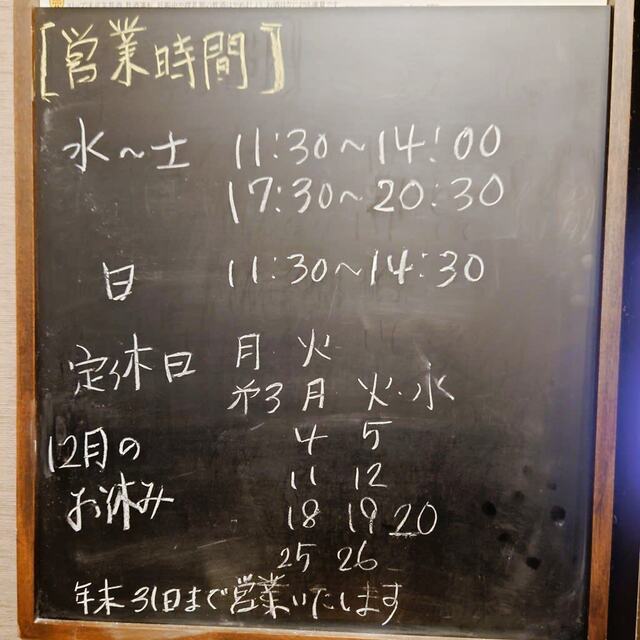 [営業時間]
水～土 11:30～14:00
17:30～20:30
日 11:30～14:30
定休日 月 火
第3月 火・水
12月の 4 5
11 12
お休み 18 19 20
25 26
年末31日まで営業いたします